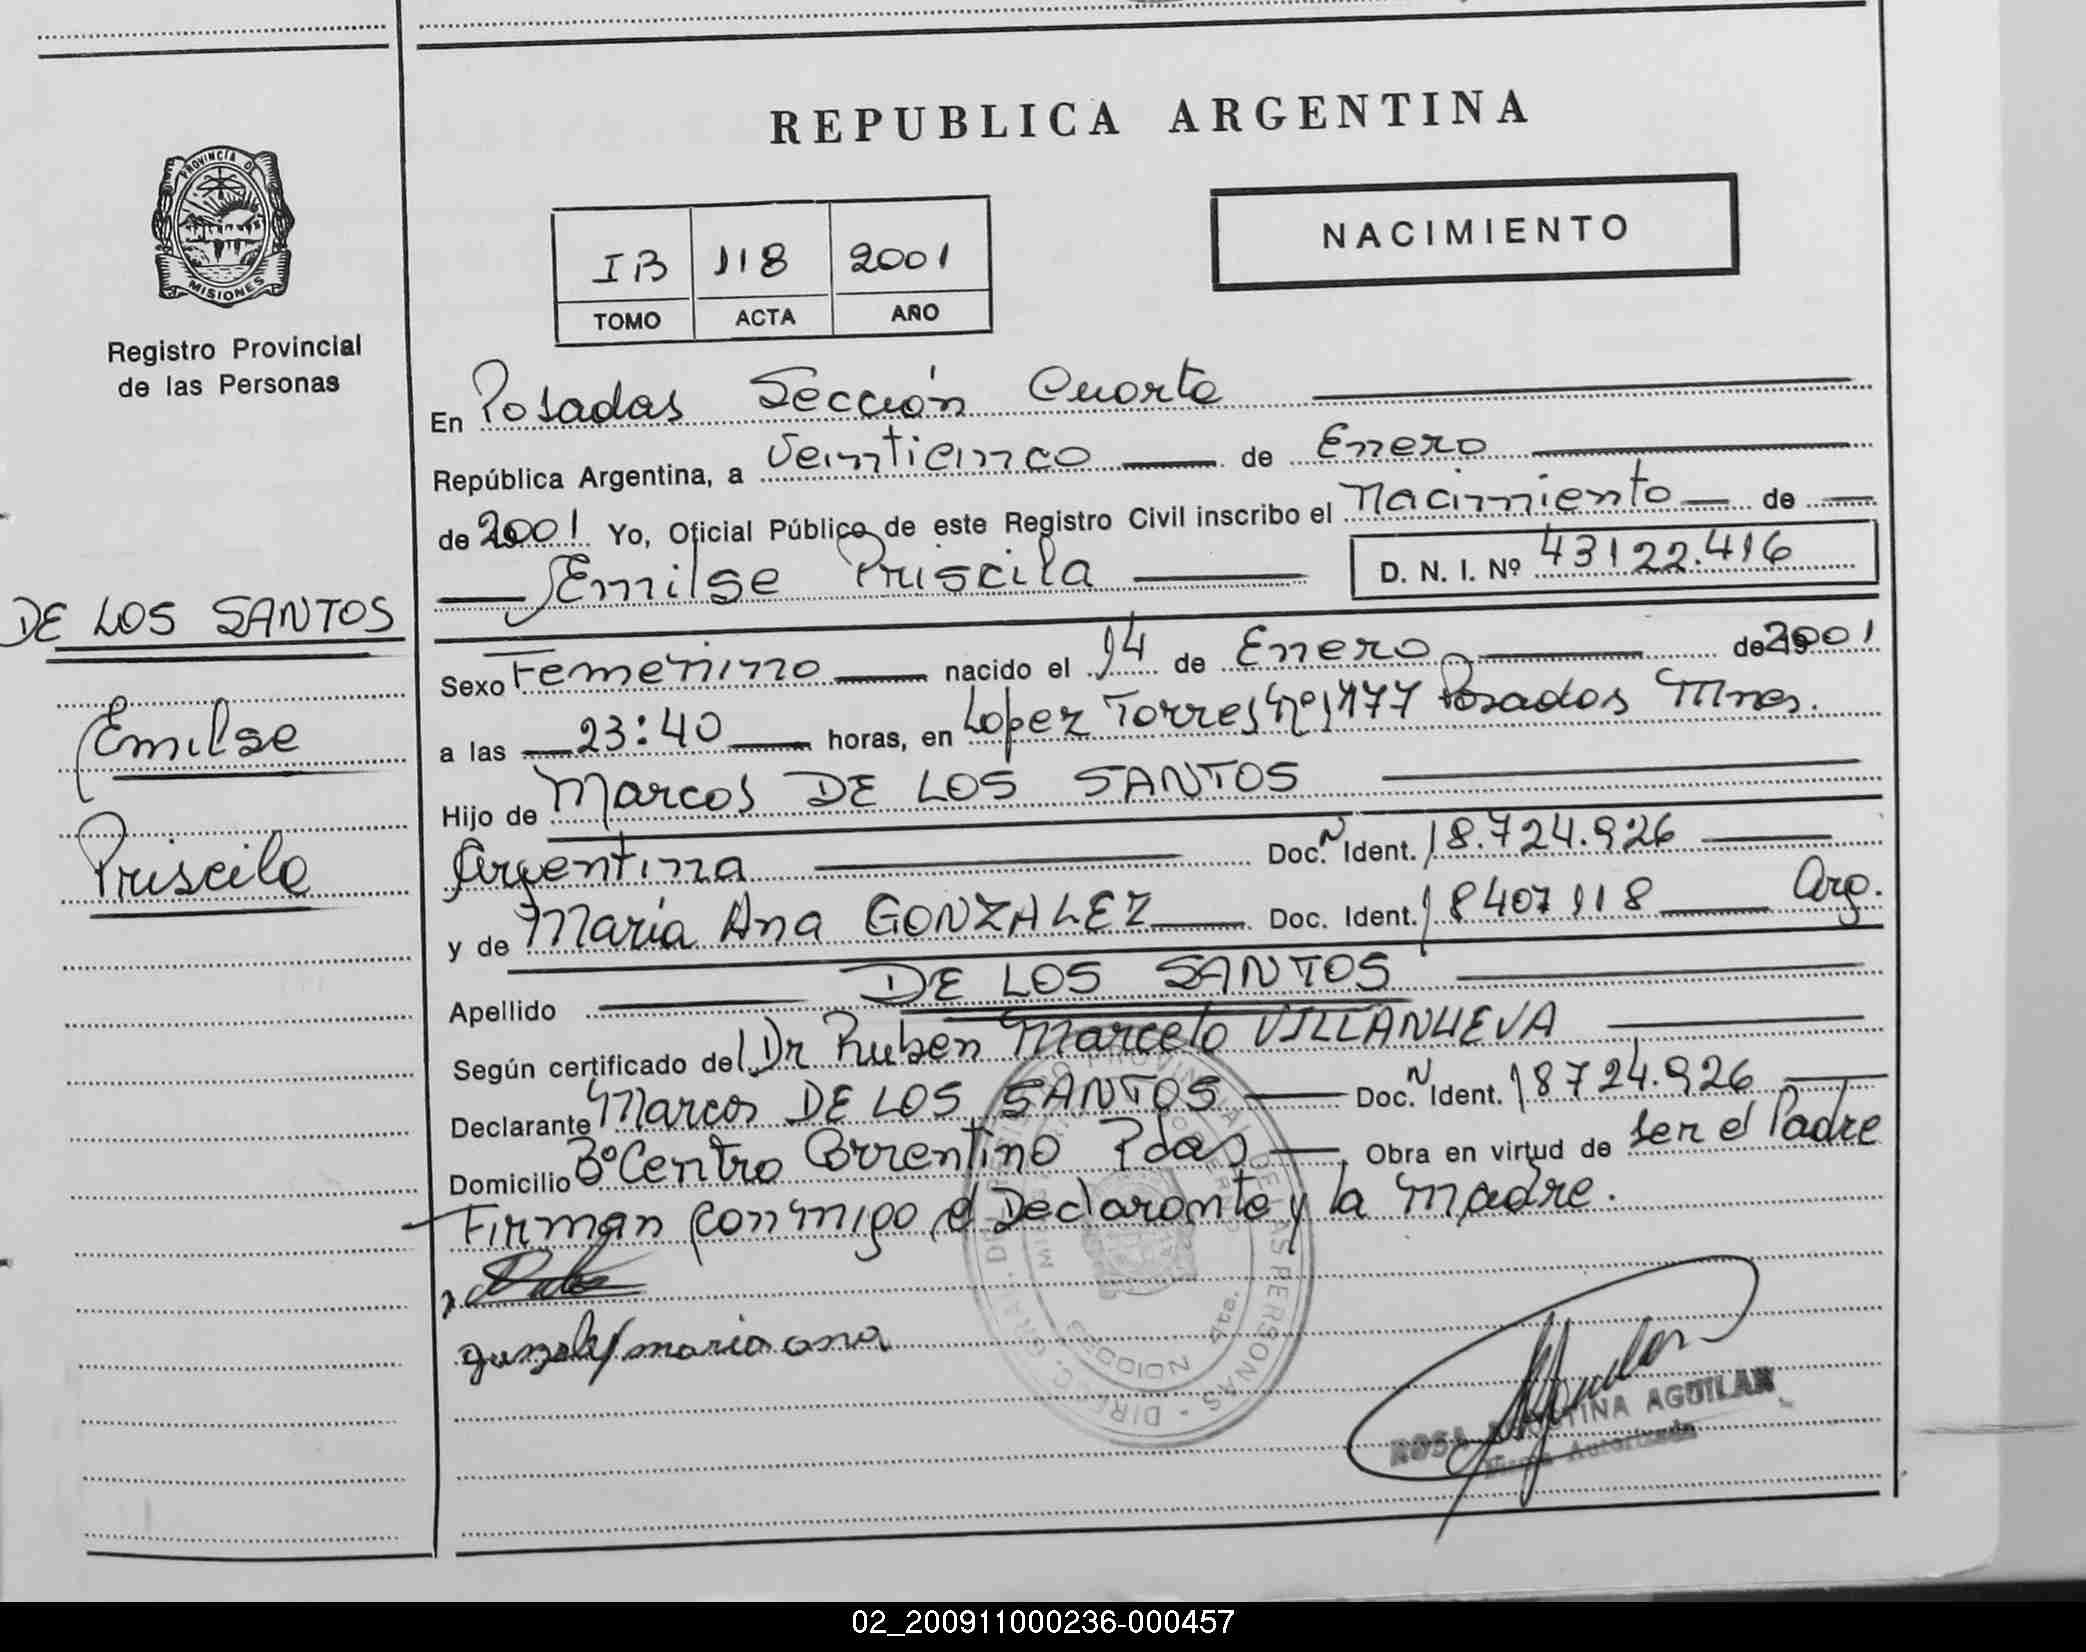 REPUBLICA ARGENTINA
PROVINCIA DE
MISIONES
Registro Provincial
de las Personas
NACIMIENTO
IB 118 2001
TOMO ACTA AÑO
En Posadas Sección Cuarta
República Argentina, a Veinticinco de Enero
de 2001 Yo, Oficial Público de este Registro Civil inscribo el Nacimiento de
Emilse Priscila D. N. I. Nº 43122.416
DE LOS SANTOS
Emilse
Priscila
Sexo Femenino nacido el 14 de Enero de 2001
a las 23:40 horas, en Lopez Torres Nº 1177 Posadas Mnes.
Hijo de Marcos DE LOS SANTOS
Argentina Doc. N Ident. 18.724.926
y de Maria Ana GONZALEZ Doc. Ident. 18407118 Arg.
Apellido DE LOS SANTOS
Según certificado del Dr Ruben Marcelo VILLANUEVA
Declarante Marcos DE LOS SANTOS Doc. N Ident. 18724.926
Domicilio Bº Centro Correntino Pdas Obra en virtud de ser el Padre
Firman conmigo el Declarante y la Madre.
maria ana
ROSA AGUSTINA AGUILAR
Firma Autorizada
02_200911000236-000457